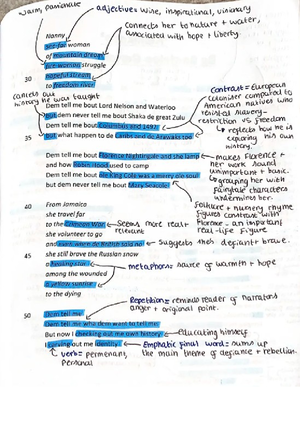 warm, passionate
adjectives = wise, inspirational, visionary
connects her to nature + water,
associated with hope + liberty
Nanny
see-far woman
of mountain dream
fire-woman struggle
30 hopeful stream
to freedom river
cancels out
history he was taught
Dem tell me bout Lord Nelson and Waterloo
But dem never tell me bout Shaka de great Zulu
Dem tell me bout Columbus and 1492
35 But what happen to de Caribs and de Arawaks too
Contrast = European
coloniser compared to
American natives who
resisted slavery -
restriction vs freedom
reflects how he is
exploring his own
history.
Dem tell me bout Florence Nightingale and she lamp
and how Robin Hood used to camp
Dem tell me bout ole King Cole was a merry ole soul
but dem never tell me bout Mary Seacole
makes Florence +
her work sound
unimportant + basic.
grouping her with
fairytale characters
undermines her.
Folklore + nursery rhyme
figures contrast with
Florence - an important
real-life figure
40 From Jamaica
she travel far
to the Crimean War
she volunteer to go
and even when de British said no
45 she still brave the Russian snow
Seems more real + relevant
Suggests she's defiant + brave.
a healing star
among the wounded
a yellow sunrise
to the dying
metaphors = source of warmth + hope
Repetition = reminds reader of narrators
anger + original point.
50 Dem tell me
Dem tell me wha dem want to tell me
But now I checking out me own history
I carving out me identity
educating himself
Emphatic final word = sums up
the main theme of defiance + rebellion.
verb = permenant,
personal